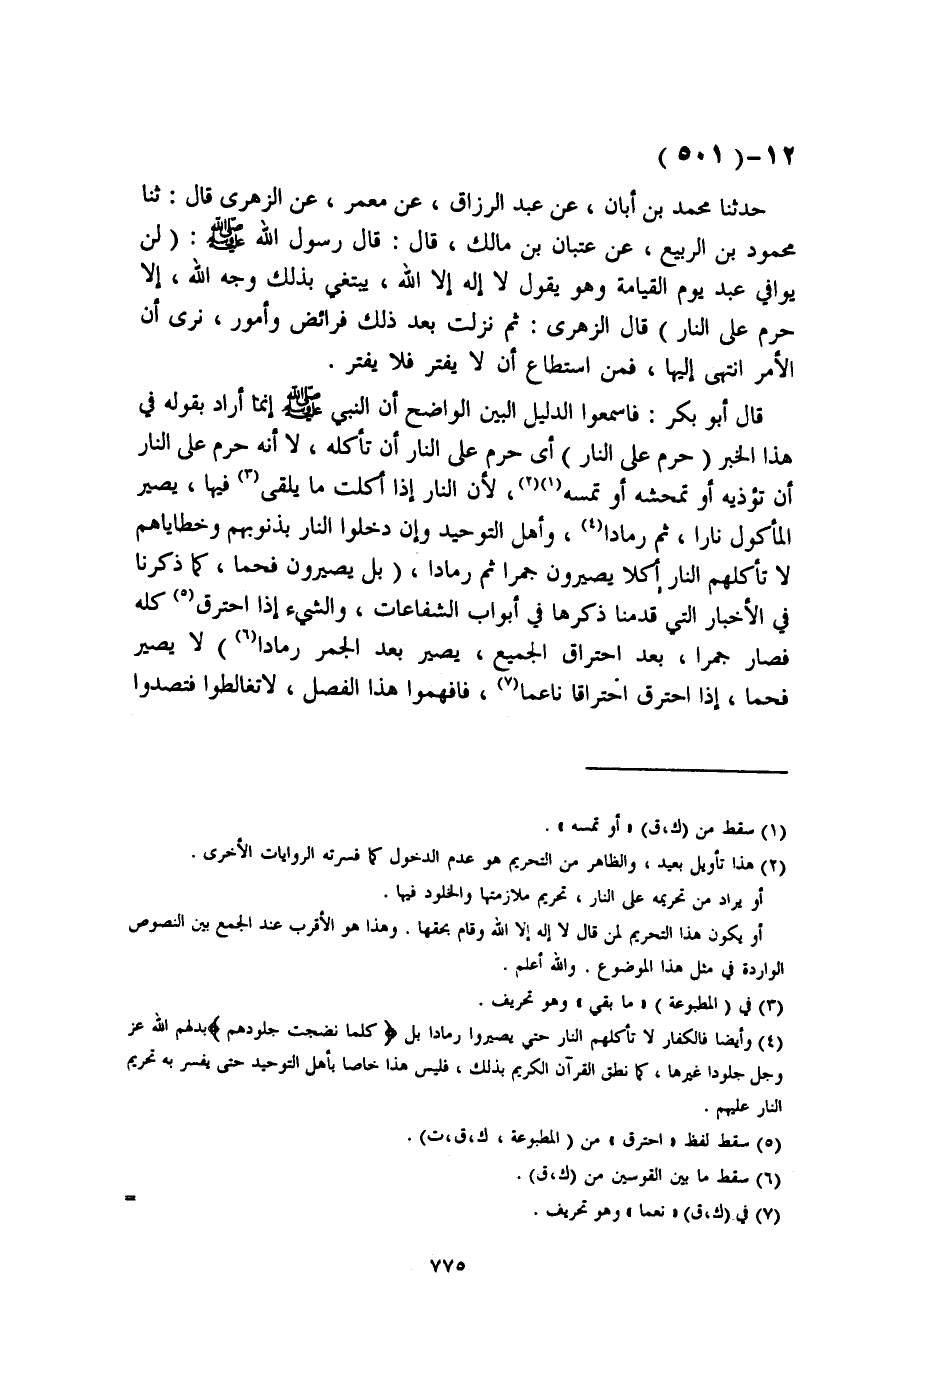 ١٢-( ٥٠١ )
حدثنا محمد بن أبان ، عن عبد الرزاق ، عن معمر ، عن الزهرى قال : ثنا
محمود بن الربيع ، عن عتبان بن مالك ، قال : قال رسول الله ﷺ : ( لن
يوافي عبد يوم القيامة وهو يقول لا إله إلا الله ، يبتغي بذلك وجه الله ، إلا
حرم على النار ) قال الزهرى : ثم نزلت بعد ذلك فرائض وأمور ، نرى أن
الأمر انتهى إليها ، فمن استطاع أن لا يفتر فلا يفتر .
قال أبو بكر : فاسمعوا الدليل البين الواضح أن النبي ﷺ إنما أراد بقوله في
هذا الخبر ( حرم على النار ) أى حرم على النار أن تأكله ، لا أنه حرم على النار
أن تؤذيه أو تمحشه أو تمسه(١)(٢)، لأن النار إذا أكلت ما يلقى(٣) فيها ، يصير
المأكول نارا ، ثم رمادا(٤) ، وأهل التوحيد وإن دخلوا النار بذنوبهم وخطاياهم
لا تأكلهم النار أكلا يصيرون جمرا ثم رمادا ، ( بل يصيرون فحما ، كما ذكرنا
في الأخبار التي قدمنا ذكرها في أبواب الشفاعات ، والشيء إذا احترق(٥) كله
فصار جمرا ، بعد احتراق الجميع ، يصير بعد الجمر رمادا(٦) ) لا يصير
فحما ، إذا احترق احتراقا ناعما(٧) ، فافهموا هذا الفصل ، لاتغالطوا فتصدوا
(١) سقط من (ك،ق) « أو تمسه » .
(٢) هذا تأويل بعيد ، والظاهر من التحريم هو عدم الدخول كما فسرته الروايات الأخرى .
أو يراد من تحريمه على النار ، تحريم ملازمتها والخلود فيها .
أو يكون هذا التحريم لمن قال لا إله إلا الله وقام بحقها . وهذا هو الأقرب عند الجمع بين النصوص
الواردة في مثل هذا الموضوع . والله أعلم .
(٣) في ( المطبوعة ) « ما بقي » وهو تحريف .
(٤) وأيضا فالكفار لا تأكلهم النار حتي يصيروا رمادا بل ﴿ كلما نضجت جلودهم ﴾بدلهم الله عز
وجل جلودا غيرها ، كما نطق القرآن الكريم بذلك ، فليس هذا خاصا بأهل التوحيد حتى يفسر به تحريم
النار عليهم .
(٥) سقط لفظ « احترق » من ( المطبوعة ، ك،ق،ت) .
(٦) سقط ما بين القوسين من (ك،ق) .
(٧) في (ك،ق) « نعما » وهو تحريف .
=
٧٧٥